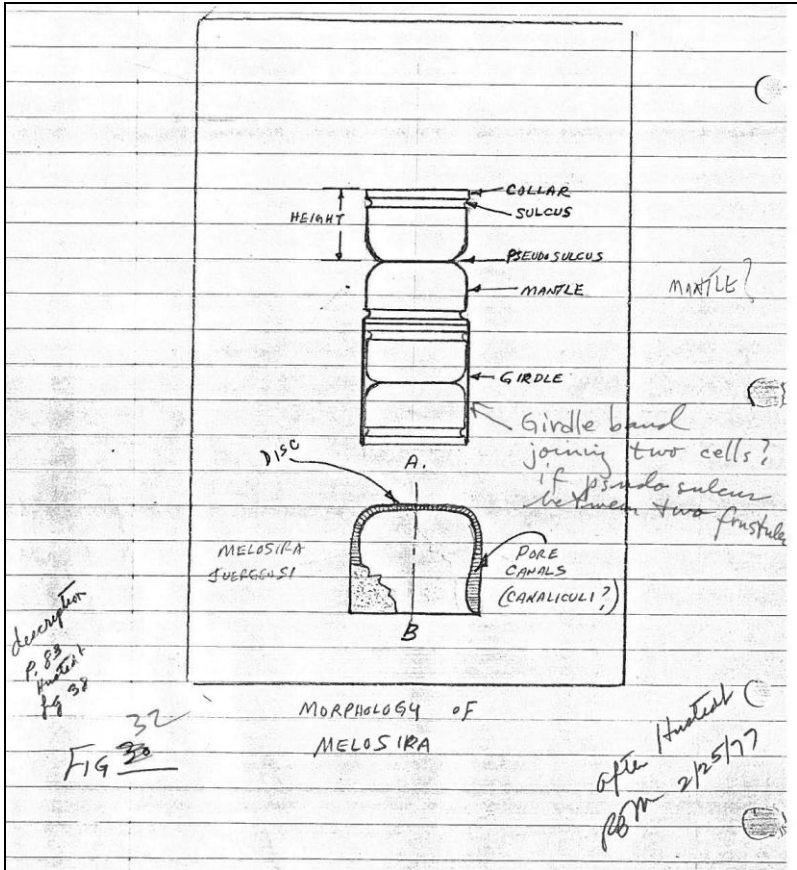 COLLAR
SULCUS
HEIGHT
PSEUDOSULCUS
MANTLE
MANTLE?
GIRDLE
Girdle band
joining two cells?
if psudo sulcus
between two frustules
A.
DISC
MELOSIRA
JUERGENSI
PORE
CANALS
(CANALICULI?)
B
description
P. 83
Hustedt
fig 38
MORPHOLOGY OF
MELOSIRA
32
FIG 30
after Hustedt
RBM 2/25/77